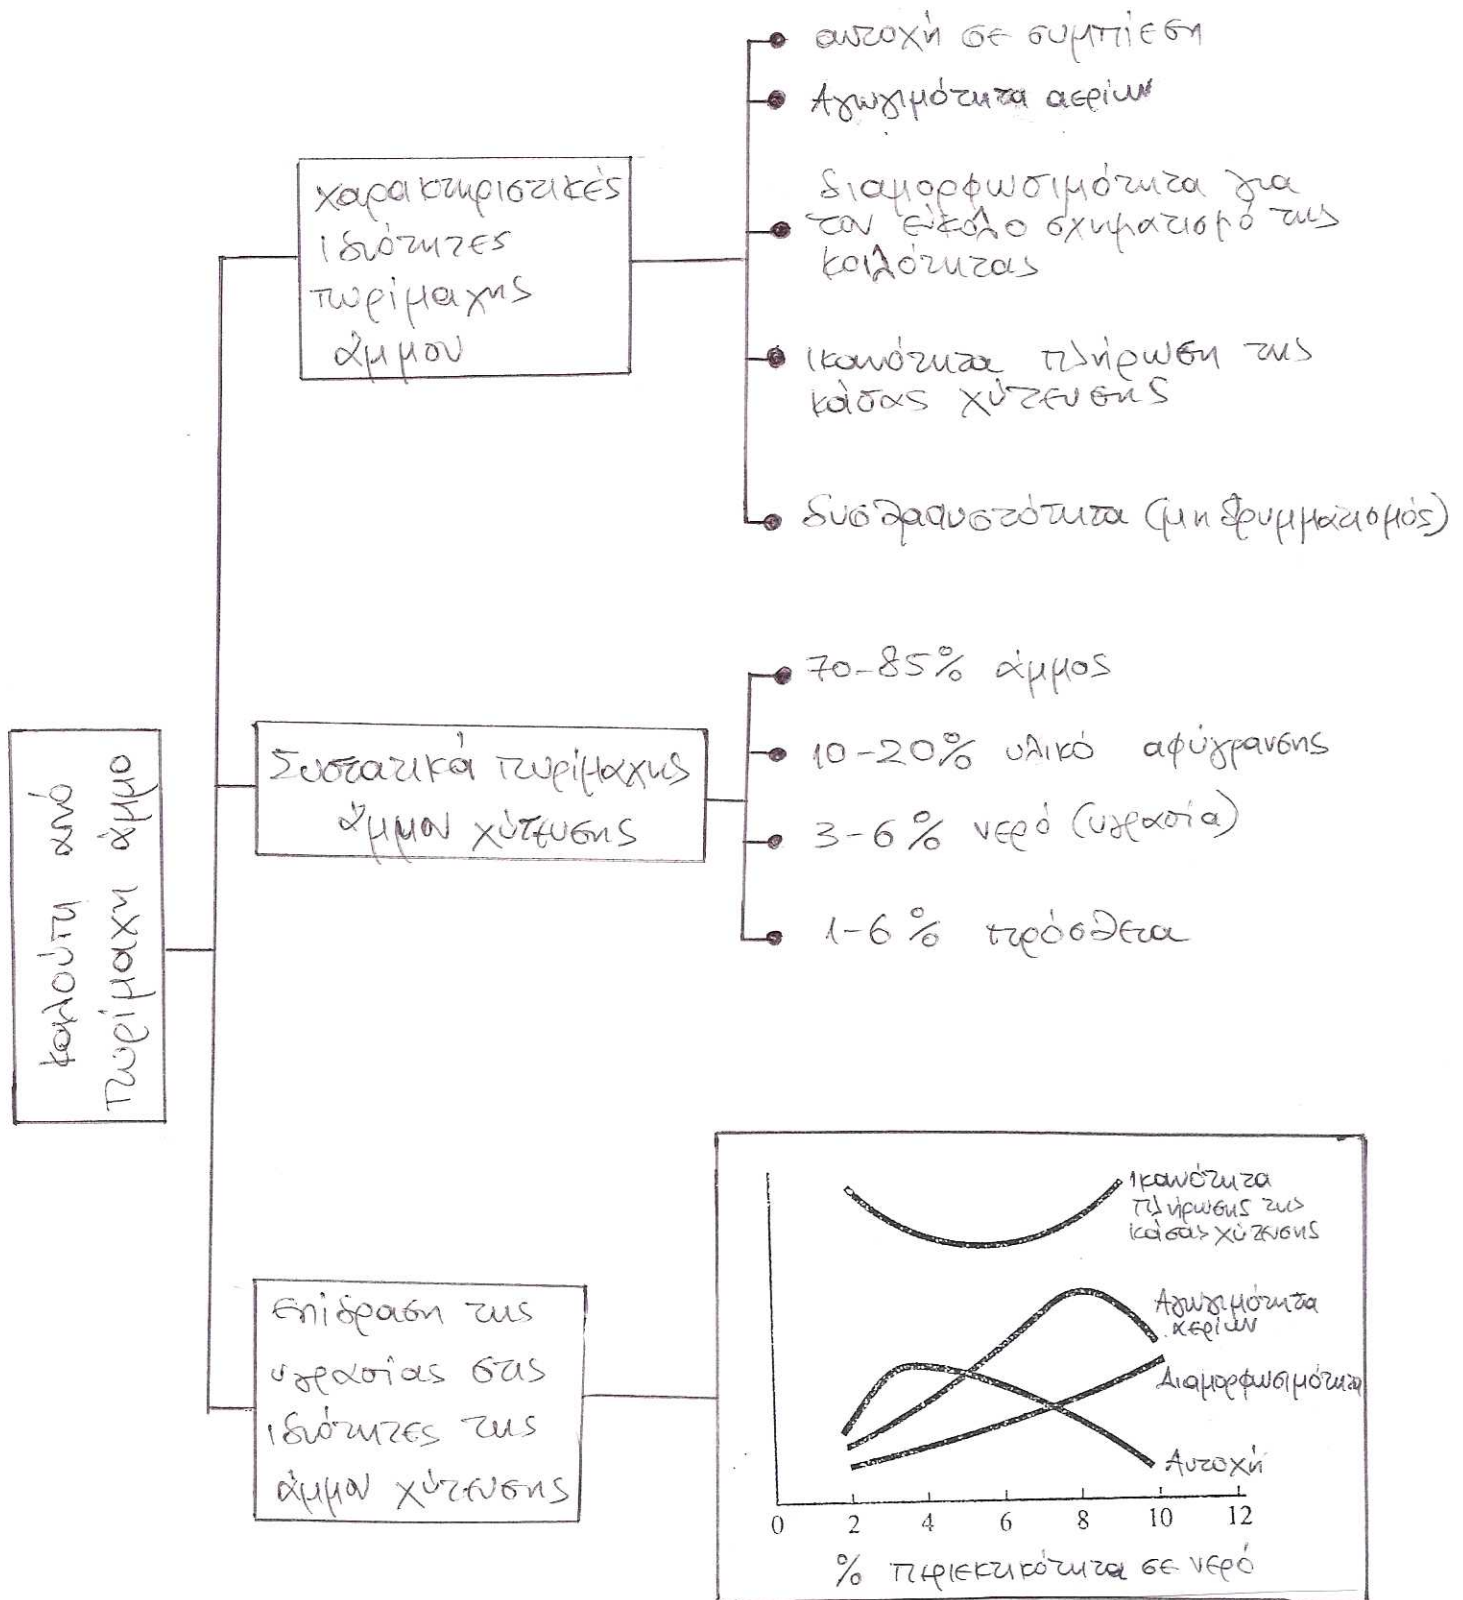 αντοχή σε συμπίεση
Αγωγιμότητα αερίων
χαρακτηριστικές
ιδιότητες
πυρίμαχης
άμμου
διαμορφωσιμότητα για
τον εύκολο σχηματισμό της
κοιλότητας
ικανότητα πλήρωση της
κάσας χύτευσης
δυσθραυστότητα (μη θρυμματισμός)
καλούπι από
πυρίμαχη άμμο
Συστατικά πυρίμαχης
άμμου χύτευσης
70-85% άμμος
10-20% υλικό αφύγρανσης
3-6% νερό (υγρασία)
1-6% πρόσθετα
επίδραση της
υγρασίας στις
ιδιότητες της
άμμου χύτευσης
Ικανότητα
πλήρωσης της
κάσας χύτευσης
Αγωγιμότητα
αερίων
Διαμορφωσιμότητα
Αντοχή
0 2 4 6 8 10 12
% περιεκτικότητα σε νερό